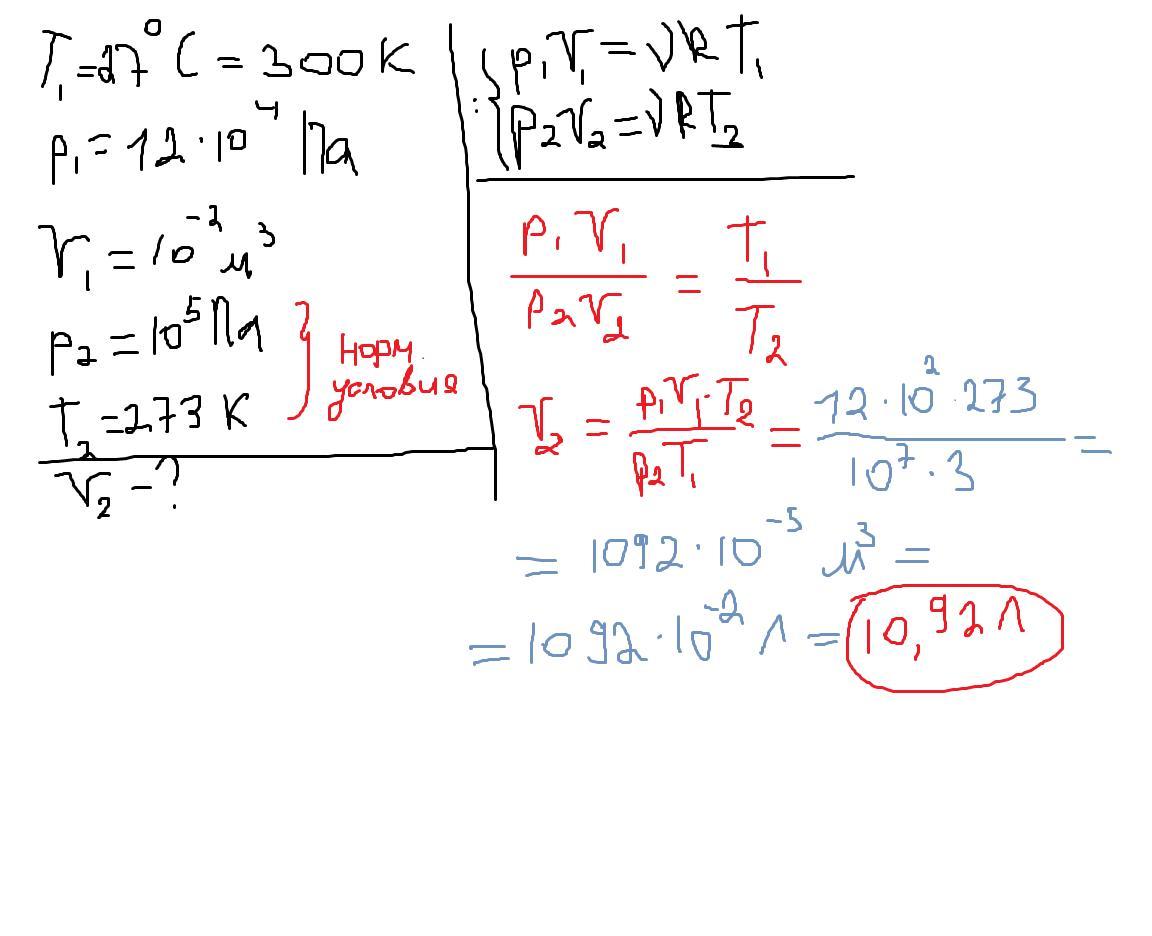 T₁=27⁰C = 300K
p₁ = 12·10⁴ Па
V₁ = 10⁻² м³
p₂ = 10⁵ Па
T₂ = 273 К
норм.
условия
V₂ - ?
: { p₁V₁ = νRT₁
p₂V₂ = νRT₂
p₁V₁ / p₂V₂ = T₁ / T₂
V₂ = p₁V₁·T₂ / p₂T₁ = 12·10²·273 / 10⁷·3 =
= 1092·10⁻⁵ м³ =
= 1092·10⁻² л = 10,92 л